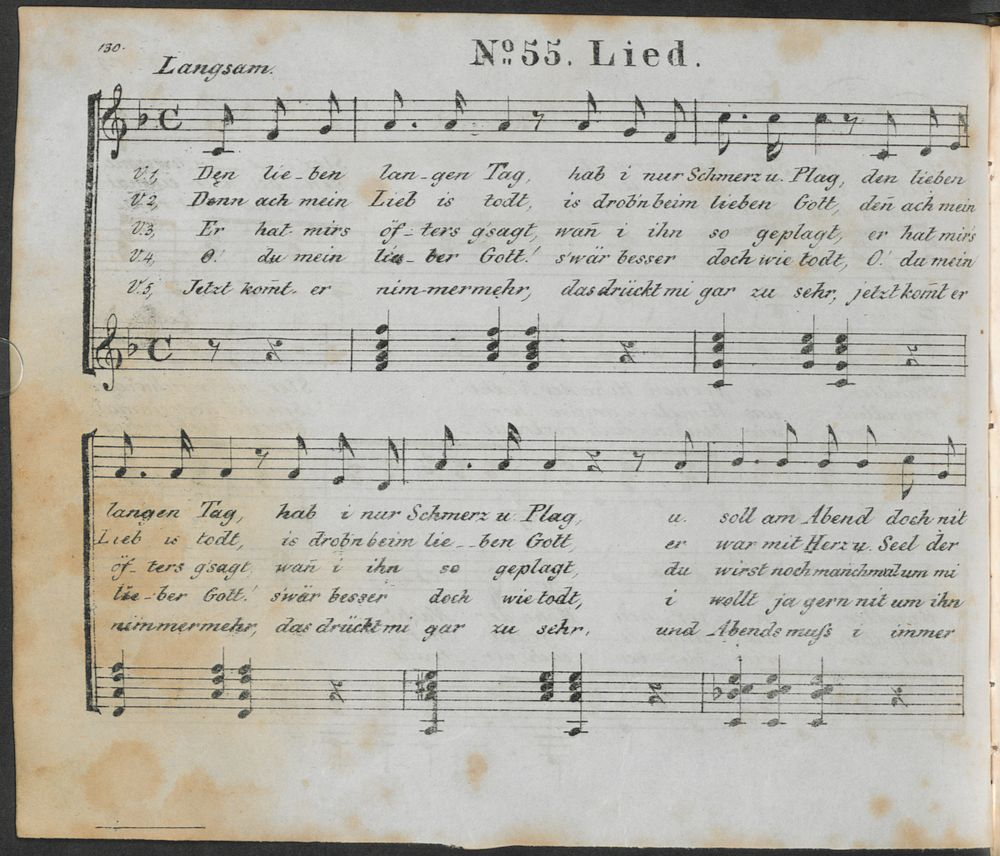 130.
Nº 55. Lied.
Langsam.
V.1, Den lie-ben lan-gen Tag, hab i nur Schmerz u. Plag, den lieben
V.2, Denn ach mein Lieb is todt, is drob'n beim lieben Gott, den̄ ach mein
V.3, Er hat mirs öf-ters g'sagt, wan̄ i ihn so geplagt, er hat mir's
V.4, O! du mein lie-ber Gott! s'wär besser doch wie todt, O! du mein
V.5, Jetzt kom̄t er nim-mermehr, das drückt mi gar zu sehr, jetzt kom̄t er
langen Tag, hab i nur Schmerz u. Plag, u. soll am Abend doch nit
Lieb is todt, is drob'n beim lie--ben Gott, er war mit Herz u. Seel der
öf-ters g'sagt, wan̄ i ihn so geplagt, du wirst noch manchmal um mi
lie-ber Gott! s'wär besser doch wie todt, i wollt ja gern nit um ihn
nimmermehr, das drückt mi gar zu sehr, und Abends muſs i immer